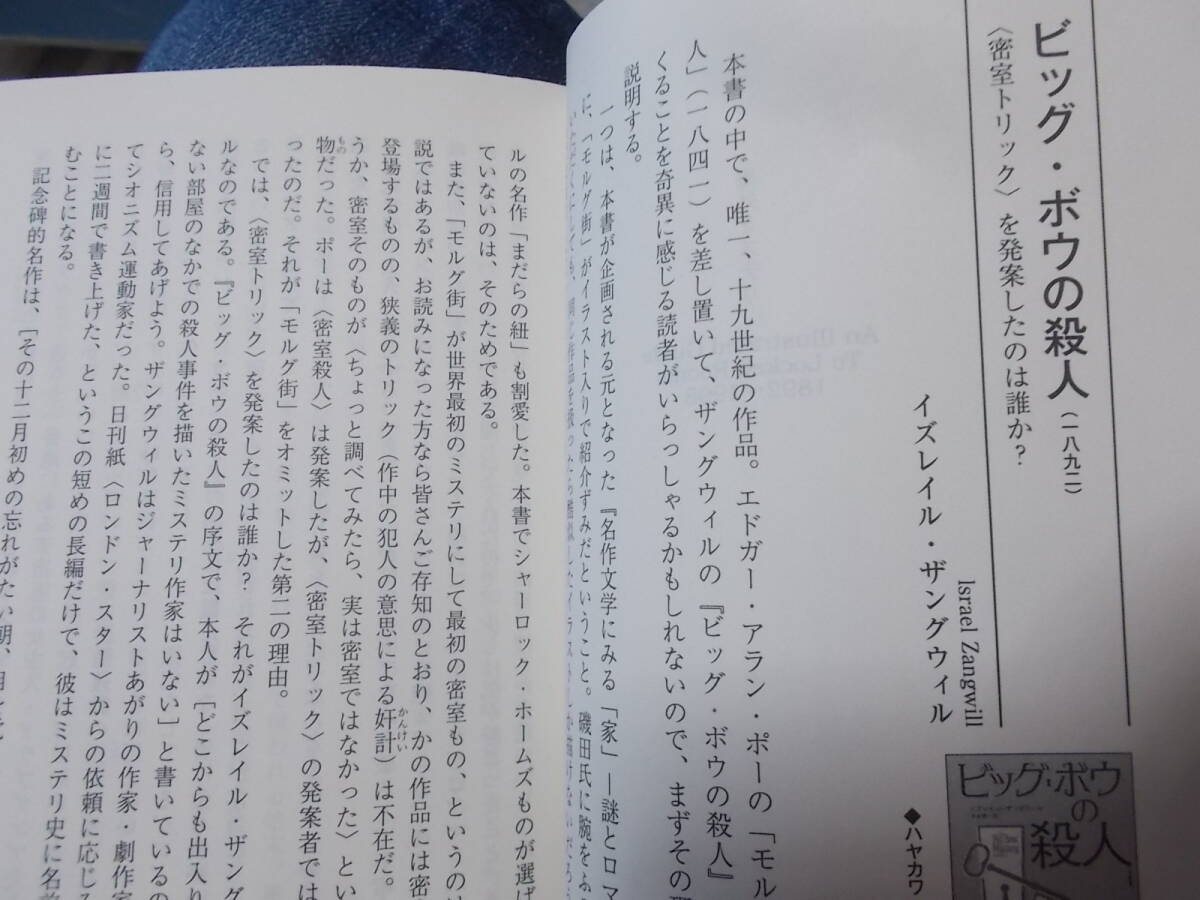 ビッグ・ボウの殺人（一八九二）
〈密室トリック〉を発案したのは誰か？
イズレイル・ザングウィル
Israel Zangwill
ビッグ・ボウ
の
殺人
◆ハヤカワ
本書の中で、唯一、十九世紀の作品。エドガー・アラン・ポーの「モル
人」（一八四一）を差し置いて、ザングウィルの『ビッグ・ボウの殺人』
くることを奇異に感じる読者がいらっしゃるかもしれないので、まずその
説明する。
一つは、本書が企画される元となった『名作文学にみる「家」―謎とロマ
に、「モルグ街」がイラスト入りで紹介ずみだということ。磯田氏に腕をふ
ルの名作「まだらの紐」も割愛した。本書でシャーロック・ホームズものが選ば
ていないのは、そのためである。
また、「モルグ街」が世界最初のミステリにして最初の密室もの、というのは
説ではあるが、お読みになった方なら皆さんご存知のとおり、かの作品には密
登場するものの、狭義のトリック（作中の犯人の意思による奸計かんけい）は不在だ。
うか、密室そのものが〈ちょっと調べてみたら、実は密室ではなかった〉とい
物ものだった。ポーは〈密室殺人〉は発案したが、〈密室トリック〉の発案者では
ったのだ。それが「モルグ街」をオミットした第二の理由。
では、〈密室トリック〉を発案したのは誰か？ それがイズレイル・ザング
ルなのである。『ビッグ・ボウの殺人』の序文で、本人が［どこからも出入り
ない部屋のなかでの殺人事件を描いたミステリ作家はいない］と書いているの
ら、信用してあげよう。ザングウィルはジャーナリストあがりの作家・劇作家
てシオニズム運動家だった。日刊紙〈ロンドン・スター〉からの依頼に応じ
に二週間で書き上げた、というこの短めの長編だけで、彼はミステリ史に名前
むことになる。
記念碑的名作は、［その十二月初めの忘れがたい朝、